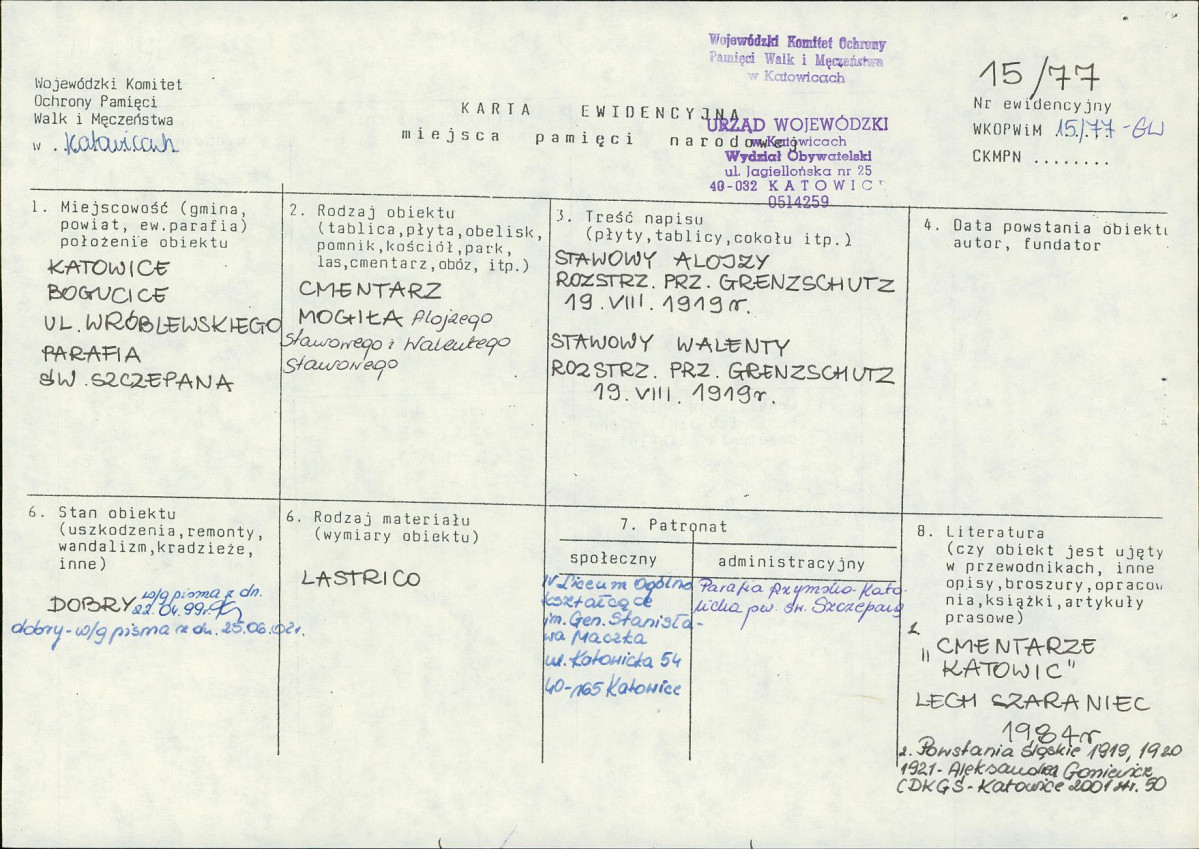 Wojewódzki Komitet
Ochrony Pamięci
Walk i Męczeństwa
w . Katowicach
KARTA EWIDENCYJNA
miejsca pamięci narodowej
Wojewódzki Komitet Ochrony
Pamięci Walk i Męczeństwa
w Katowicach
URZĄD WOJEWÓDZKI
w Katowicach
Wydział Obywatelski
ul. Jagiellońska nr 25
40-032 KATOWIC
0514259
15/77
Nr ewidencyjny
WKOPWiM 15/77-GW
CKMPN ........
1. Miejscowość (gmina,
powiat, ew.parafia)
położenie obiektu
KATOWICE
BOGUCICE
UL. WRÓBLEWSKIEGO
PARAFIA
ŚW. SZCZEPANA
2. Rodzaj obiektu
(tablica,płyta,obelisk,
pomnik,kościół,park,
las,cmentarz,obóz, itp.)
CMENTARZ
MOGIŁA Alojzego
Stawowego i Walentego
Stawowego
3. Treść napisu
(płyty,tablicy,cokołu itp.)
STAWOWY ALOJZY
ROZSTRZ. PRZ. GRENZSCHUTZ
19. VIII. 1919r.
STAWOWY WALENTY
ROZSTRZ. PRZ. GRENZSCHUTZ
19. VIII. 1919r.
4. Data powstania obiektu
autor, fundator
6. Stan obiektu
(uszkodzenia,remonty,
wandalizm,kradzieże,
inne)
DOBRY w/g pisma z dn.
22.04.99r.
dobry - w/g pisma z dn. 25.06.02r.
6. Rodzaj materiału
(wymiary obiektu)
LASTRICO
7. Patronat
społeczny
IV Liceum Ogólno
kształcące
im. Gen. Stanisła-
wa Maczka
ul. Katowicka 54
40-165 Katowice
administracyjny
Parafia Rzymsko-Kato-
licka pw. św. Szczepana
8. Literatura
(czy obiekt jest ujęty
w przewodnikach, inne
opisy,broszury,opracow
nia,książki,artykuły
prasowe)
1. "CMENTARZE
KATOWIC"
LECH SZARANIEC
1984r
2. Powstania śląskie 1919, 1920
1921 - Aleksandra Goniewicz
CDKGŚ - Katowice 2001 str. 50